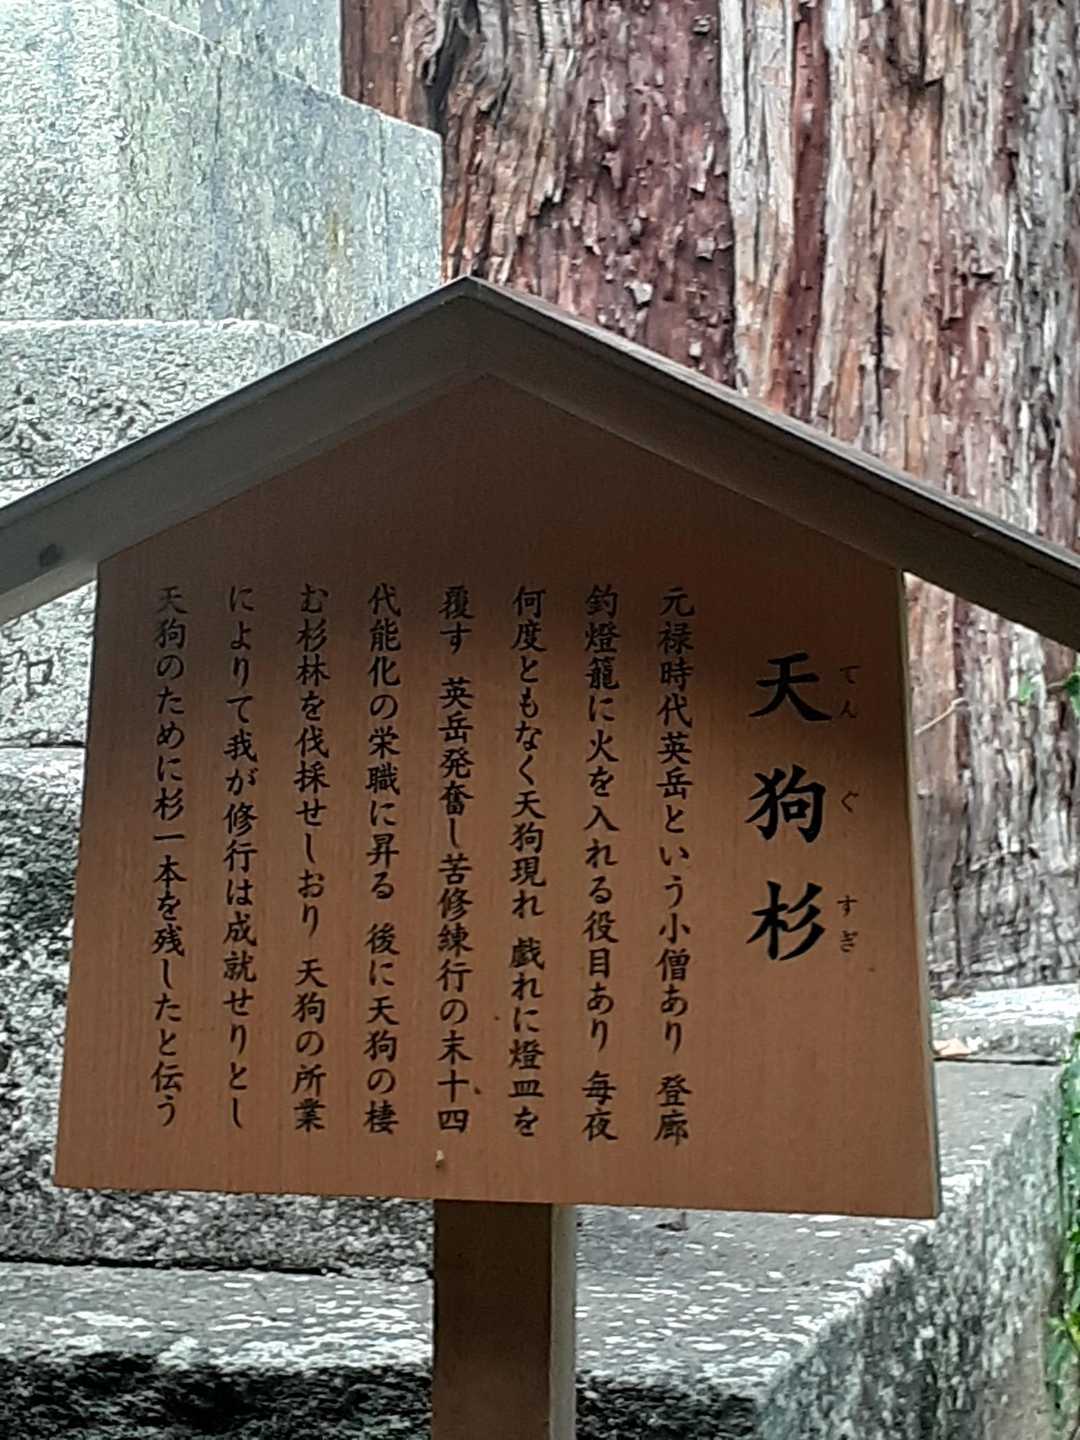 天狗杉
てんぐすぎ
元禄時代英岳という小僧あり 登廊
釣燈籠に火を入れる役目あり 毎夜
何度ともなく天狗現れ 戯れに燈皿を
覆す 英岳発奮し苦修練行の末十四
代能化の栄職に昇る 後に天狗の棲
む杉林を伐採せしおり 天狗の所業
によりて我が修行は成就せりとし
天狗のために杉一本を残したと伝う